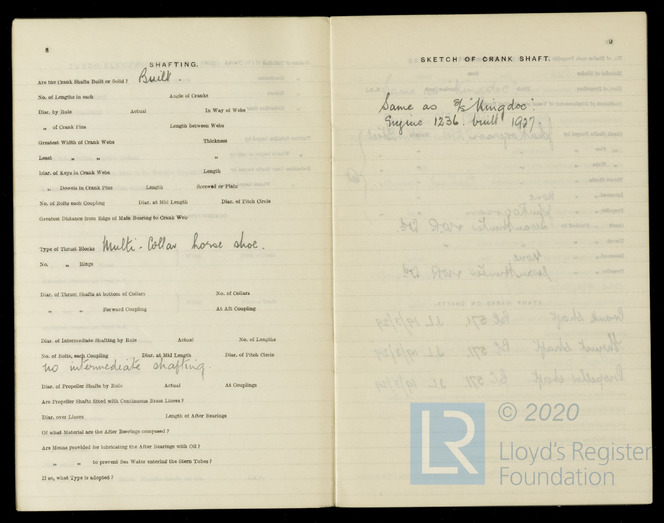 8
SHAFTING.
Are the Crank Shafts Built or Solid? Built.
No. of Lengths in each Angle of Cranks
Diar. by Rule Actual In Way of Webs
„ of Crank Pins Length between Webs
Greatest Width of Crank Webs Thickness
Least „ „ „
Diar. of Keys in Crank Webs Length
„ Dowels in Crank Pins Length Screwed or Plain
No. of Bolts each Coupling Diar. at Mid Length Diar. of Pitch Circle
Greatest Distance from Edge of Main Bearing to Crank Web
Type of Thrust Blocks Multi-Collar horse shoe.
No. „ Rings
Diar. of Thrust Shafts at bottom of Collars No. of Collars
„ „ Forward Coupling At Aft Coupling
Diar. of Intermediate Shafting by Rule Actual No. of Lengths
No. of Bolts, each Coupling Diar. at Mid Length Diar. of Pitch Circle
no intermediate shafting.
Diar. of Propeller Shafts by Rule Actual At Couplings
Are Propeller Shafts fitted with Continuous Brass Liners?
Diar. over Liners Length of After Bearings
Of what Material are the After Bearings composed?
Are Means provided for lubricating the After Bearings with Oil?
„ „ to prevent Sea Water entering the Stern Tubes?
If so, what Type is adopted?
9
SKETCH OF CRANK SHAFT.
Same as S/S "Kingdoc".
Engine 1236. built 1927.
LR
© 2020
Lloyd's Register
Foundation